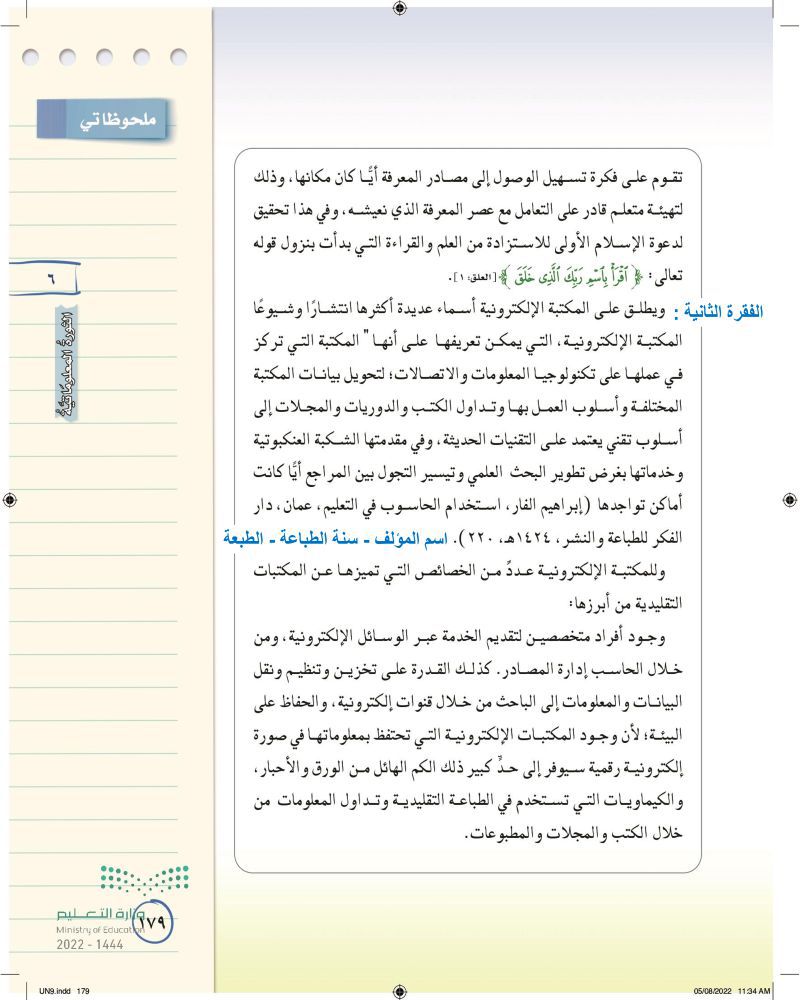 ملحوظاتي
تقوم على فكرة تسهيل الوصول إلى مصادر المعرفة أيًّا كان مكانها، وذلك
لتهيئة متعلم قادر على التعامل مع عصر المعرفة الذي نعيشه، وفي هذا تحقيق
لدعوة الإسلام الأولى للاستزادة من العلم والقراءة التي بدأت بنزول قوله
تعالى: ﴿ ٱقْرَأْ بِٱسْمِ رَبِّكَ ٱلَّذِى خَلَقَ ﴾ [العلق: ١].
الفقرة الثانية :
ويطلق على المكتبة الإلكترونية أسماء عديدة أكثرها انتشارًا وشيوعًا
المكتبة الإلكترونية، التي يمكن تعريفها على أنها " المكتبة التي تركز
في عملها على تكنولوجيا المعلومات والاتصالات؛ لتحويل بيانات المكتبة
المختلفة وأسلوب العمل بها وتداول الكتب والدوريات والمجلات إلى
أسلوب تقني يعتمد على التقنيات الحديثة، وفي مقدمتها الشكبة العنكبوتية
وخدماتها بغرض تطوير البحث العلمي وتيسير التجول بين المراجع أيًّا كانت
أماكن تواجدها (إبراهيم الفار، استخدام الحاسوب في التعليم، عمان، دار
الفكر للطباعة والنشر، ١٤٢٤هـ، ٢٢٠).
اسم المؤلف - سنة الطباعة - الطبعة
وللمكتبة الإلكترونية عددٌ من الخصائص التي تميزها عن المكتبات
التقليدية من أبرزها:
وجود أفراد متخصصين لتقديم الخدمة عبر الوسائل الإلكترونية، ومن
خلال الحاسب إدارة المصادر. كذلك القدرة على تخزين وتنظيم ونقل
البيانات والمعلومات إلى الباحث من خلال قنوات إلكترونية، والحفاظ على
البيئة؛ لأن وجود المكتبات الإلكترونية التي تحتفظ بمعلوماتها في صورة
إلكترونية رقمية سيوفر إلى حدٍّ كبير ذلك الكم الهائل من الورق والأحبار،
والكيماويات التي تستخدم في الطباعة التقليدية وتداول المعلومات من
خلال الكتب والمجلات والمطبوعات.
٦
الثورةُ المعلوماتيَّةُ
وزارة التعليم
Ministry of Education
2022 - 1444
١٧٩
UN9.indd 179
05/08/2022 11:34 AM